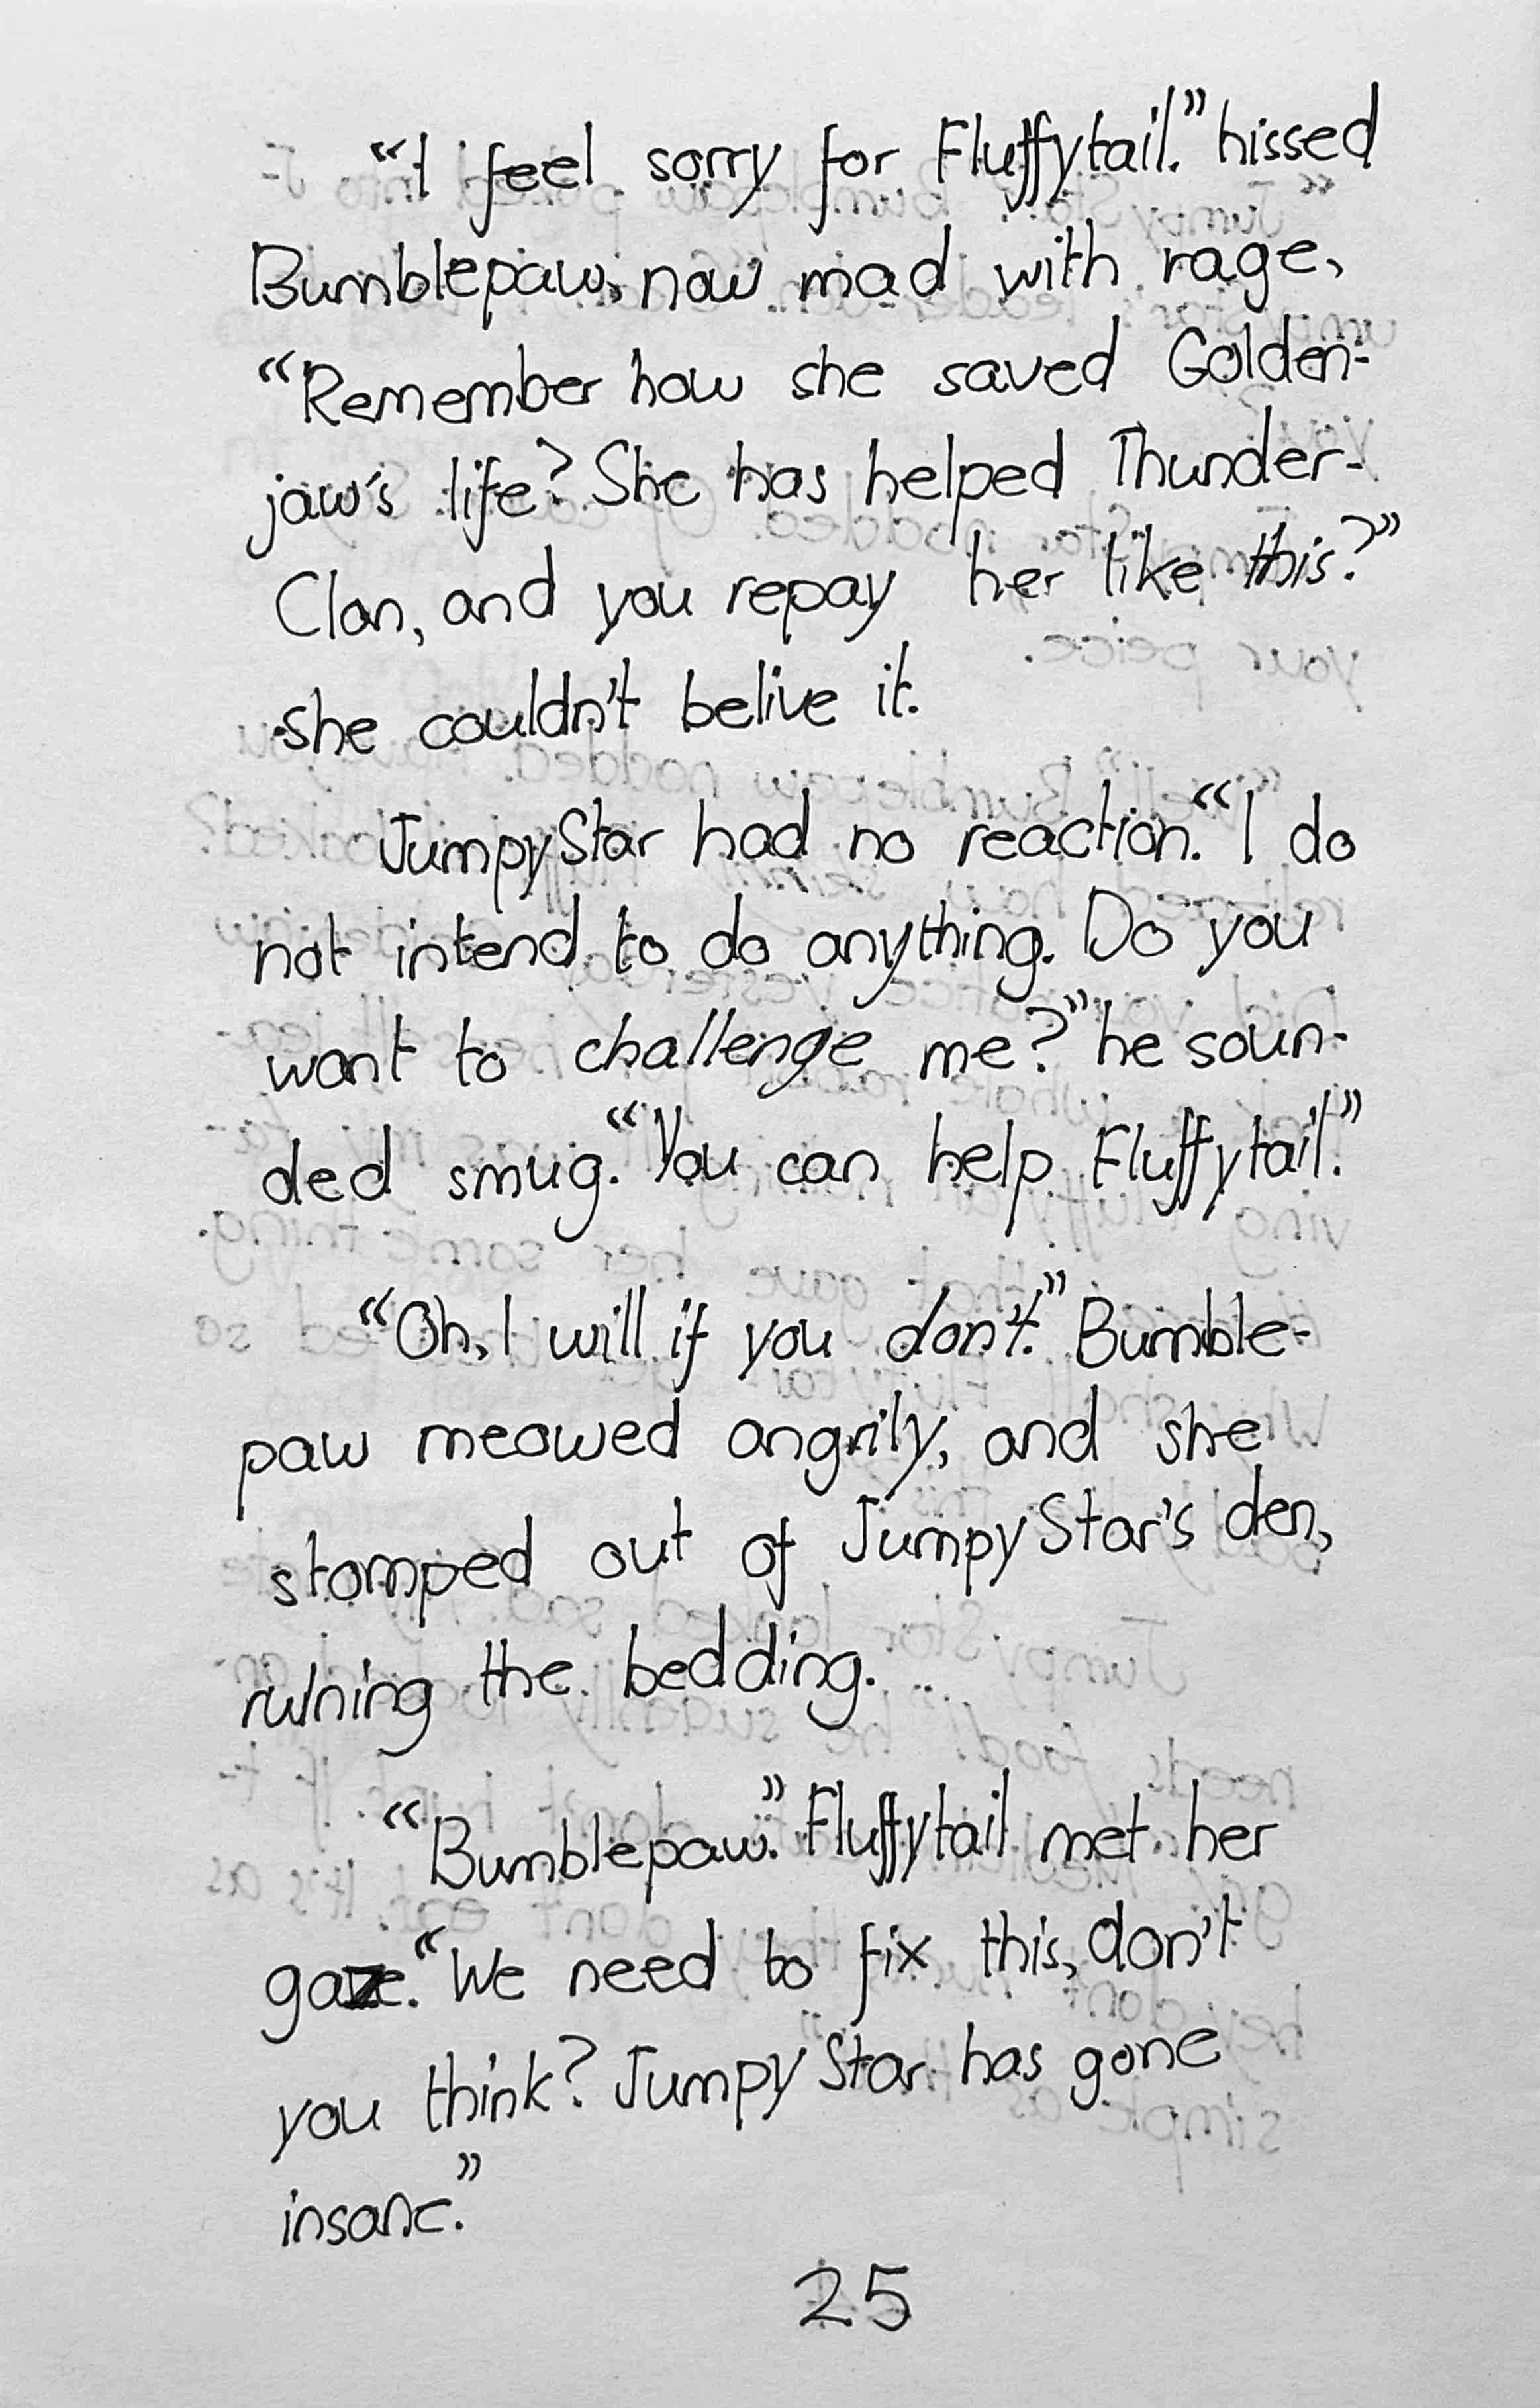 “I feel sorry for Fluffytail.” hissed
Bumblepaw, now mad with rage,
“Remember how she saved Golden-
jaw's life? She has helped Thunder-
Clan, and you repay her like this?”
she couldn't belive it.
JumpyStar had no reaction. “I do
not intend to do anything. Do you
want to challenge me?” he soun-
ded smug. “You can help Fluffytail.”
“Oh, I will if you don't.” Bumble-
paw meowed angrily, and she
stomped out of JumpyStar's den,
ruining the bedding.
“Bumblepaw.” Fluffytail met her
gaze. “We need to fix this, don't
you think? JumpyStar has gone
insane.”
25